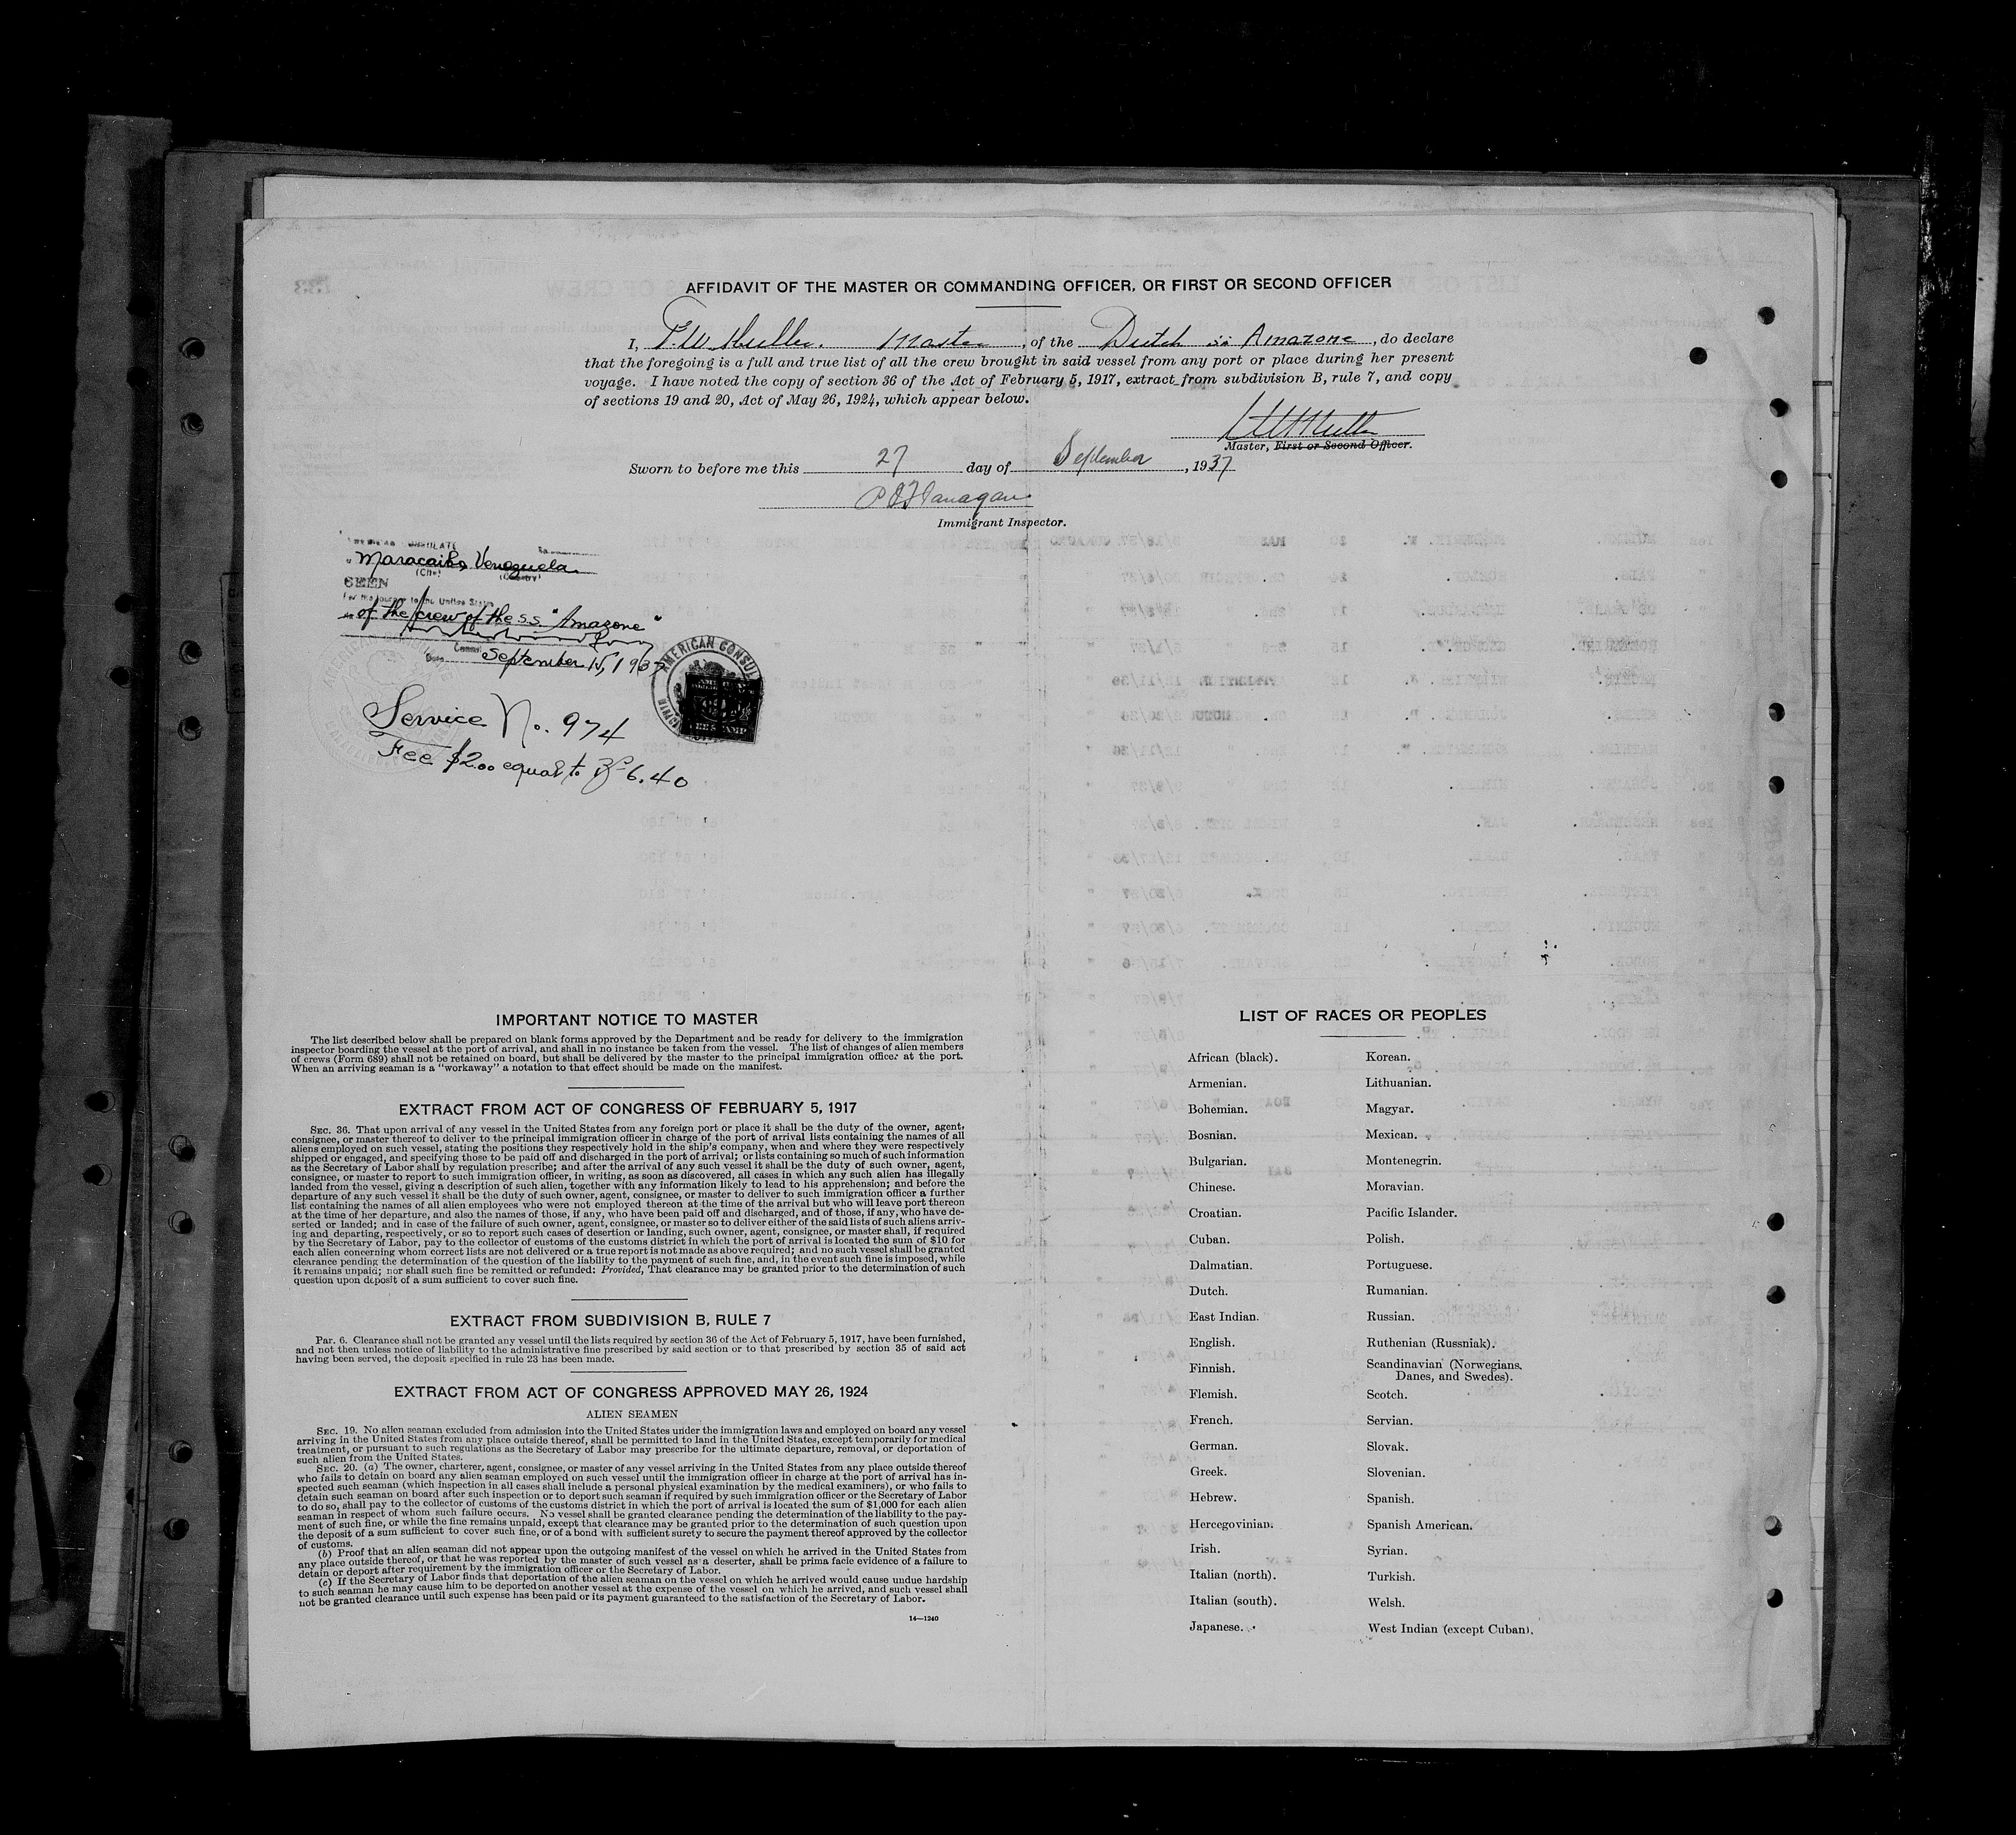 AFFIDAVIT OF THE MASTER OR COMMANDING OFFICER, OR FIRST OR SECOND OFFICER
I, Master, of the Dutch ss Amazone, do declare
that the foregoing is a full and true list of all the crew brought in said vessel from any port or place during her present
voyage. I have noted the copy of section 36 of the Act of February 5, 1917, extract from subdivision B, rule 7, and copy
of sections 19 and 20, Act of May 26, 1924, which appear below.
Master, First or Second Officer.
Sworn to before me this 27 day of September, 1937
Flanagan
Immigrant Inspector.
CONSULATE
Maracaibo, Venezuela
(City) (Country)
SEEN
For the journey to the United States
of the crew of the s.s. "Amazone"
Consul
Date September 15, 1937
AMERICAN CONSUL
FEE STAMP
Service No. 974
Fee $2.00 equal to Bs 6.40
IMPORTANT NOTICE TO MASTER
The list described below shall be prepared on blank forms approved by the Department and be ready for delivery to the immigration
inspector boarding the vessel at the port of arrival, and shall in no instance be taken from the vessel. The list of changes of alien members
of crews (Form 689) shall not be retained on board, but shall be delivered by the master to the principal immigration officer at the port.
When an arriving seaman is a "workaway" a notation to that effect should be made on the manifest.
EXTRACT FROM ACT OF CONGRESS OF FEBRUARY 5, 1917
SEC. 36. That upon arrival of any vessel in the United States from any foreign port or place it shall be the duty of the owner, agent,
consignee, or master thereof to deliver to the principal immigration officer in charge of the port of arrival lists containing the names of all
aliens employed on such vessel, stating the positions they respectively hold in the ship's company, when and where they were respectively
shipped or engaged, and specifying those to be paid off and discharged in the port of arrival; or lists containing so much of such information
as the Secretary of Labor shall by regulation prescribe; and after the arrival of any such vessel it shall be the duty of such owner, agent,
consignee, or master to report to such immigration officer, in writing, as soon as discovered, all cases in which any such alien has illegally
landed from the vessel, giving a description of such alien, together with any information likely to lead to his apprehension; and before the
departure of any such vessel it shall be the duty of such owner, agent, consignee, or master to deliver to such immigration officer a further
list containing the names of all alien employees who were not employed thereon at the time of the arrival but who will leave port thereon
at the time of her departure, and also the names of those, if any, who have been paid off and discharged, and of those, if any, who have de-
serted or landed; and in case of the failure of such owner, agent, consignee, or master so to deliver either of the said lists of such aliens arriv-
ing and departing, respectively, or so to report such cases of desertion or landing, such owner, agent, consignee, or master shall, if required
by the Secretary of Labor, pay to the collector of customs of the customs district in which the port of arrival is located the sum of $10 for
each alien concerning whom correct lists are not delivered or a true report is not made as above required; and no such vessel shall be granted
clearance pending the determination of the question of the liability to the payment of such fine, and, in the event such fine is imposed, while
it remains unpaid; nor shall such fine be remitted or refunded: Provided, That clearance may be granted prior to the determination of such
question upon deposit of a sum sufficient to cover such fine.
EXTRACT FROM SUBDIVISION B, RULE 7
PAR. 6. Clearance shall not be granted any vessel until the lists required by section 36 of the Act of February 5, 1917, have been furnished,
and not then unless notice of liability to the administrative fine prescribed by said section or to that prescribed by section 35 of said act
having been served, the deposit specified in rule 23 has been made.
EXTRACT FROM ACT OF CONGRESS APPROVED MAY 26, 1924
ALIEN SEAMEN
SEC. 19. No alien seaman excluded from admission into the United States under the immigration laws and employed on board any vessel
arriving in the United States from any place outside thereof, shall be permitted to land in the United States, except temporarily for medical
treatment, or pursuant to such regulations as the Secretary of Labor may prescribe for the ultimate departure, removal, or deportation of
such alien from the United States.
SEC. 20. (a) The owner, charterer, agent, consignee, or master of any vessel arriving in the United States from any place outside thereof
who fails to detain on board any alien seaman employed on such vessel until the immigration officer in charge at the port of arrival has in-
spected such seaman (which inspection in all cases shall include a personal physical examination by the medical examiners), or who fails to
detain such seaman on board after such inspection or to deport such seaman if required by such immigration officer or the Secretary of Labor
to do so, shall pay to the collector of customs of the customs district in which the port of arrival is located the sum of $1,000 for each alien
seaman in respect of whom such failure occurs. No vessel shall be granted clearance pending the determination of the liability to the pay-
ment of such fine, or while the fine remains unpaid, except that clearance may be granted prior to the determination of such question upon
the deposit of a sum sufficient to cover such fine, or of a bond with sufficient surety to secure the payment thereof approved by the collector
of customs.
(b) Proof that an alien seaman did not appear upon the outgoing manifest of the vessel on which he arrived in the United States from
any place outside thereof, or that he was reported by the master of such vessel as a deserter, shall be prima facie evidence of a failure to
detain or deport after requirement by the immigration officer or the Secretary of Labor.
(c) If the Secretary of Labor finds that deportation of the alien seaman on the vessel on which he arrived would cause undue hardship
to such seaman he may cause him to be deported on another vessel at the expense of the vessel on which he arrived, and such vessel shall
not be granted clearance until such expense has been paid or its payment guaranteed to the satisfaction of the Secretary of Labor.
14—1240
LIST OF RACES OR PEOPLES
African (black).
Armenian.
Bohemian.
Bosnian.
Bulgarian.
Chinese.
Croatian.
Cuban.
Dalmatian.
Dutch.
East Indian.
English.
Finnish.
Flemish.
French.
German.
Greek.
Hebrew.
Hercegovinian.
Irish.
Italian (north).
Italian (south).
Japanese.
Korean.
Lithuanian.
Magyar.
Mexican.
Montenegrin.
Moravian.
Pacific Islander.
Polish.
Portuguese.
Rumanian.
Russian.
Ruthenian (Russniak).
Scandinavian (Norwegians,
Danes, and Swedes).
Scotch.
Servian.
Slovak.
Slovenian.
Spanish.
Spanish American.
Syrian.
Turkish.
Welsh.
West Indian (except Cuban).